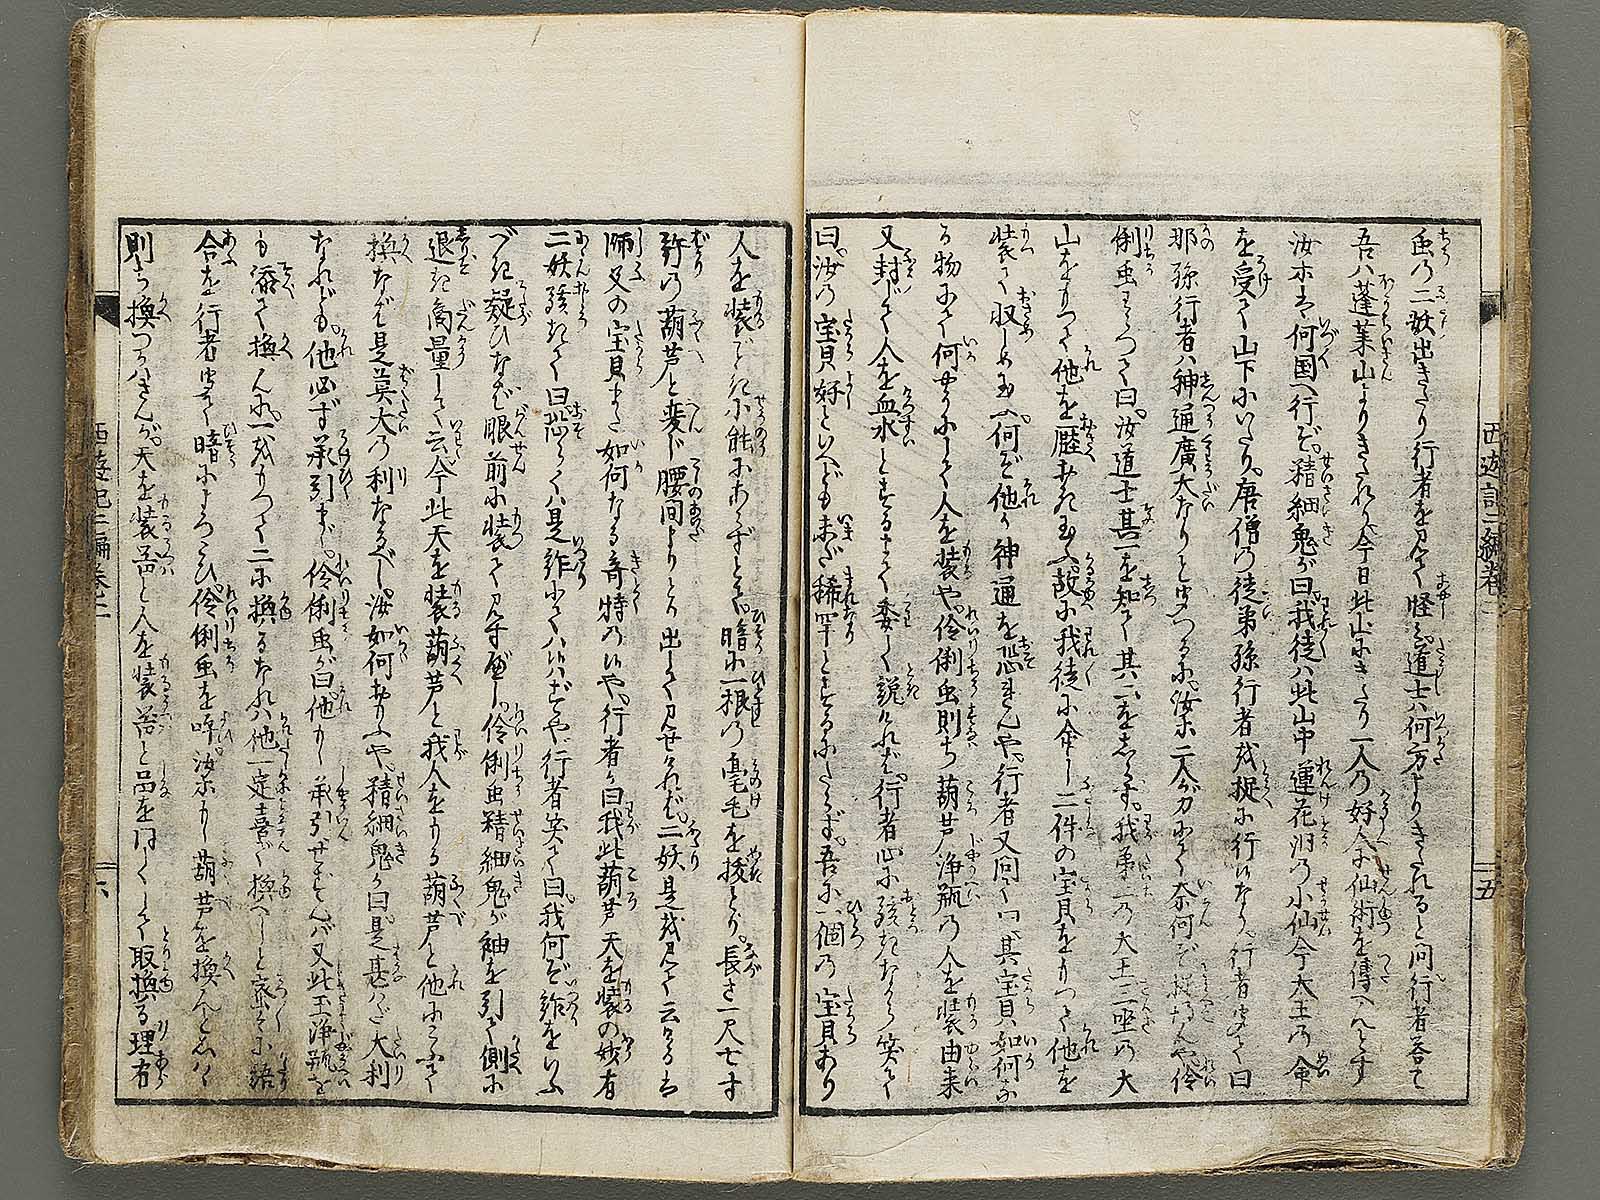 虫の二妖出きたり行者を見て怪み道士ハ何方よりきたれると問行者答て
吾ハ蓬莱山よりきたれり今日此山にきたり一人の好人に仙術を傳へんとす
汝等は何国へ行ぞ精細鬼が曰我徒ハ此山中蓮花洞の小仙今大王の命
を受て山下にいたり唐僧の徒弟孫行者を捉に行なり行者聞て曰
那孫行者ハ神通廣大なりと聞つるに汝等二人が力にて奈何ぞ捉得んや伶
俐虫わらつて曰汝道士其一を知て其二をしらず我第一の大王二座の大
山をもつて他を圧おき玉ふ故に我徒に命じ二件の宝貝をもつて他を
装て収しめ玉ふ何ぞ他が神通を恐れんや行者又問ていハく其宝貝如何な
る物にて何やうにして人を装や伶俐虫則ち葫芦浄瓶の人を装由来
又封じて人を血水とするまで委しく説けれバ行者心に驚きながら笑て
曰汝の宝貝好といへども未だ稀罕とするにたらず吾に一個の宝貝あり
人を装でに不能にあらずとて暗に一根の毫毛を抜とり長さ一尺七寸
許の葫芦と変じ腰間よりとり出して見せけれバ二妖是を見て云けるは
師父の宝貝また如何なる奇特の候や行者が曰我此葫芦天を装の妙有
二妖驚きて曰恐らくハ是詐にてハ候ハずや行者笑て曰我何ぞ詐をいふ
べき疑ひなバ眼前に装て見すべし伶俐虫精細鬼が袖を引て側に
退き商量して云今此天を装葫芦と我人をもる葫芦と他にこふて
換なバ是莫大の利なるべし汝如何おもふや精細鬼が曰是甚ハだ大利
なれども他必ず承引まじ伶俐虫が曰他もし承引せずんバ又此玉浄瓶を
も添て換んに一をもつて二に換るなれハ他一定喜び換べしと密々に語
合を行者聞て暗によろこび伶俐虫を呼汝等もし葫芦を換んと云ハゞ
則ち換つかハさんが天を装器と人を装器と品を同じくして取換る理有
西遊記二編巻二
五
西遊記二編巻二
六